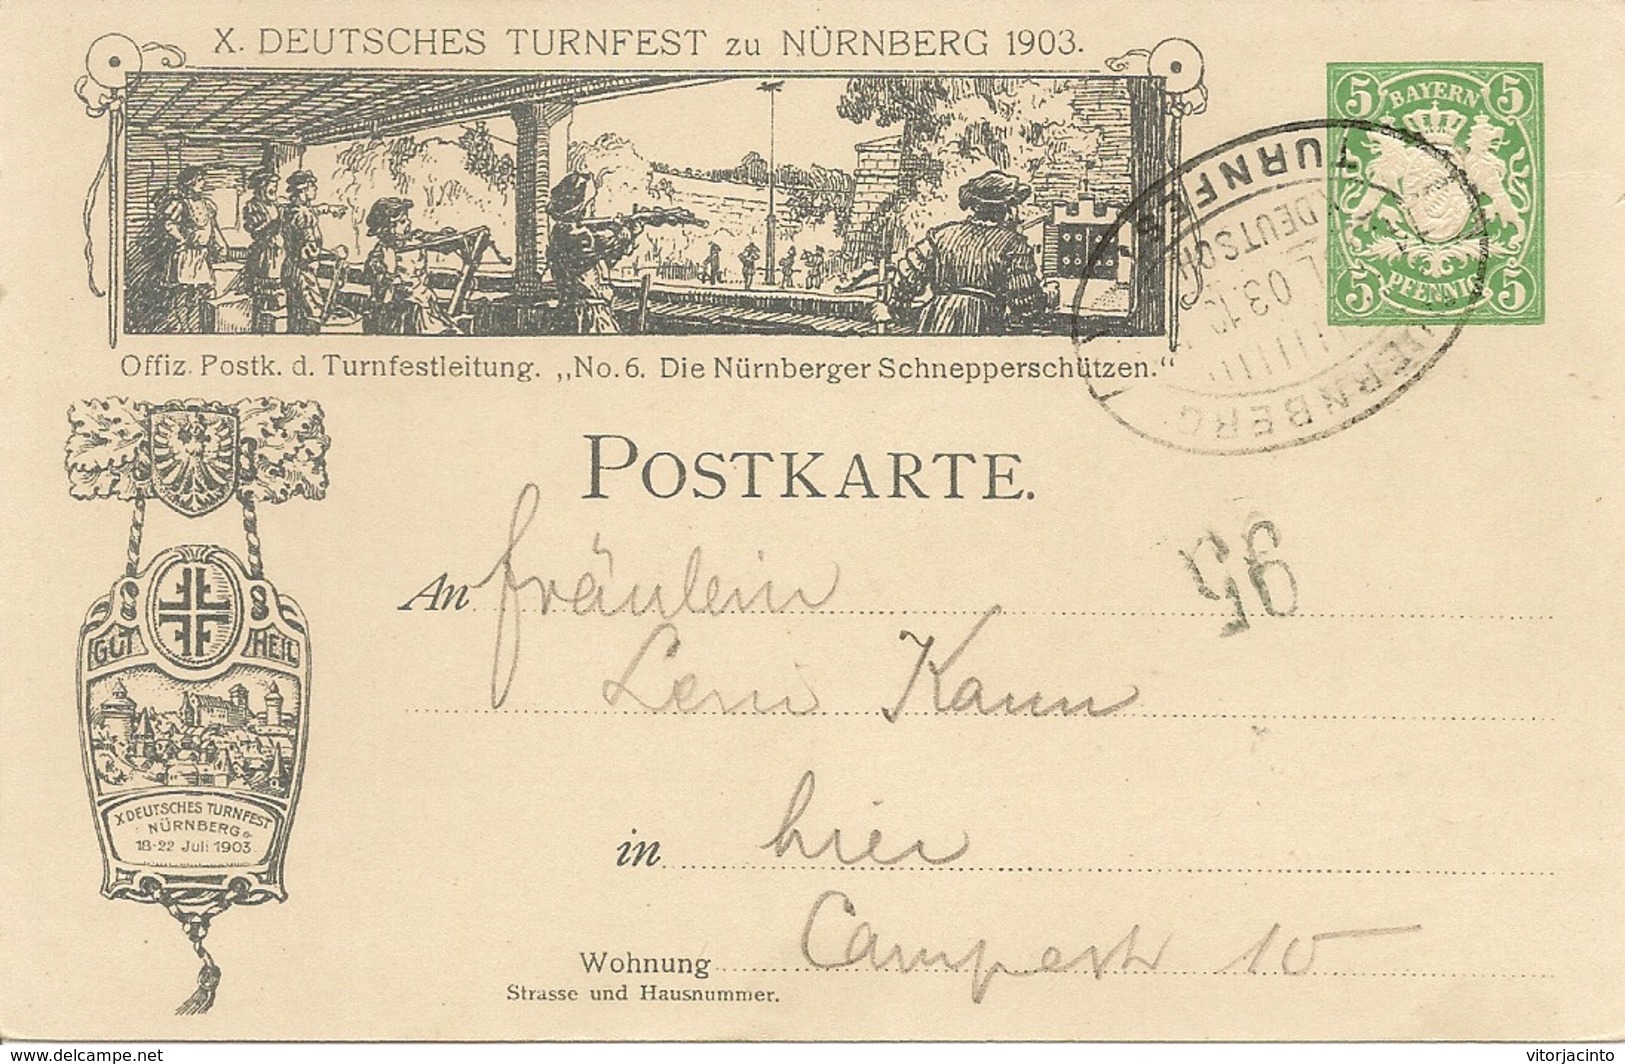 X. DEUTSCHES TURNFEST zu NÜRNBERG 1903.
5 BAYERN 5
5 PFENNIG 5
TURNFES
X.DEUTSCH
03.10
NBERG
Offiz. Postk. d. Turnfestleitung. „No. 6. Die Nürnberger Schnepperschützen."
POSTKARTE.
95
An Fräulein
Leni Kann
GUT HEIL
X DEUTSCHES TURNFEST
NÜRNBERG
18-22 Juli 1903.
in hier
Wohnung Campestr 15
Strasse und Hausnummer.
www.delcampe.net
vitorjacinto